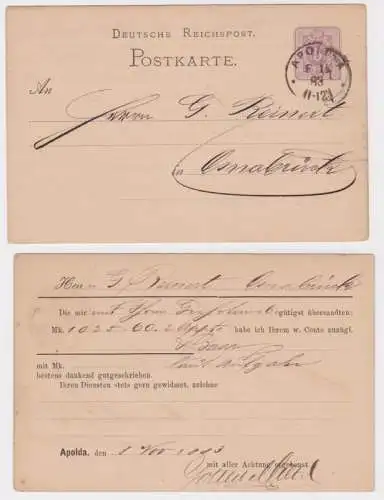 DEUTSCHE REICHSPOST.
POSTKARTE.
An
APOLDA
83
11-12V
Herrn G. Reinert
in Osnabrück
Herrn G. Reinert Osnabrück
Die mir mit Ihrem gütigst übersandten:
Mk. 1025.00. habe ich Ihrem w. Conto zuzügl.
mit Mk. laut Aufgabe
bestens dankend gutgeschrieben.
Ihren Diensten stets gern gewidmet, zeichne
Apolda, den 1 Nov 1883
mit aller Achtung ergebenst